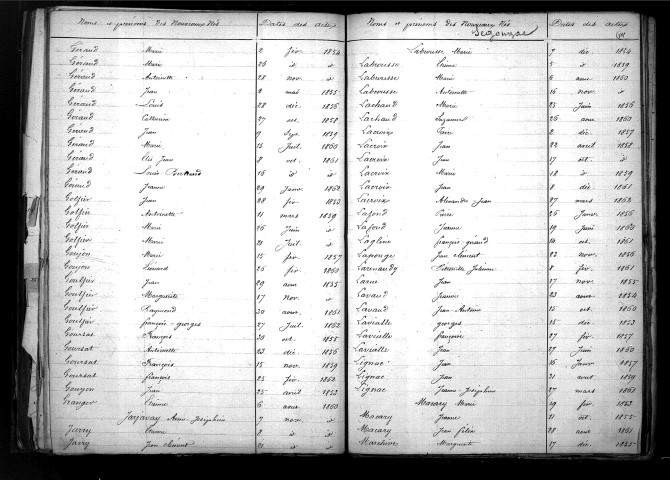 Noms et prénoms des Nouveaux Nés Dates des actes
Géraud Marie 2 fév. 1854
Géraud Marie 26 d° d°
Géraud Antoinette 28 nov. d°
Géraud Jean 2 mai 1855
Géraud Louis 28 déc. 1856
Géraud Catherine 27 oct. 1858
Géraud Jean 9 Sep. 1859
Géraud Marie 15 Juil. 1860
Géraud Jean 8 oct. 1861
Géraud Louis Bertrand 16 d° d°
Géraud Jeanne 29 Janv. 1862
Golfier Jean 28 fév. 1853
Golfier Antoinette 11 mars 1859
Golfier Marie 26 Juin d°
Golfier Marie 21 Juil. d°
Goujon Marie 15 fév. 1857
Goujon Léonard 26 fév. 1860
Goulfier Jean 29 1855
Goulfier Marguerite 17 Nov. d°
Goulfier Raymond 30 1861
Goulfier françois-georges 27 Juil. 1862
Goursat François 30 oct. 1855
Goursat Antoinette 23 déc. 1856
Goursat François 15 nov. 1859
Goursat françois 23 fév. 1862
Gouyon Jean 25 avril 1853
Granger 6 1860
Jarjavay Anne Joséphine 7 nov. d°
Jarry 2 d° d°
Jarry Jean Clément 21 d° d°
Noms et prénoms des Nouveaux Nés Dates des actes
Segonzac
Labrousse Marie 7 déc. 1854
Labrousse 5 d° 1859
Labrousse Marie 6 1860
Labrousse Antoinette 16 nov. d°
Lachaud Marie 23 Juin 1856
Lachaud Suzanne 26 1860
Lacroix 2 déc. 1857
Lacroix Jean 22 avril 1858
Lacroix Jean 17 oct. d°
Lacroix Marie 18 d° 1859
Lacroix Jean 8 déc. 1861
Lacroix Alexandre-Jean 27 mars 1862
Lafond Pierre 26 Janv. 1856
Lafond Jeanne 19 Juin 1860
françois géraud 14 oct. 1861
Laporge Jean Clément 22 nov. 1856
Julienne 8 fév. 1861
Larue Jean 27 nov. 1855
Lavaud Jeanne 23 1854
Lavaud Jean-Antoine 15 oct. 1860
Lavialle georges 15 déc. 1853
Lavialle françoise 27 fév. 1857
Lavialle Jean 27 Juin 1860
Lignac Jean 16 Janv. 1857
Lignac Jean 21 1859
Lignac Jeanne Joséphine 27 mars 1861
Macary Marie 19 fév. 1853
Macary Jeanne 11 oct. 1855
Macary Jean Félix 28 1861
Marguerite 17 déc. 1855